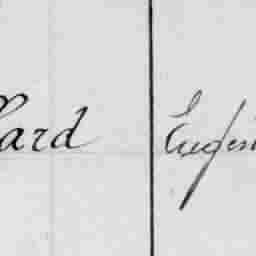 lard Eugen